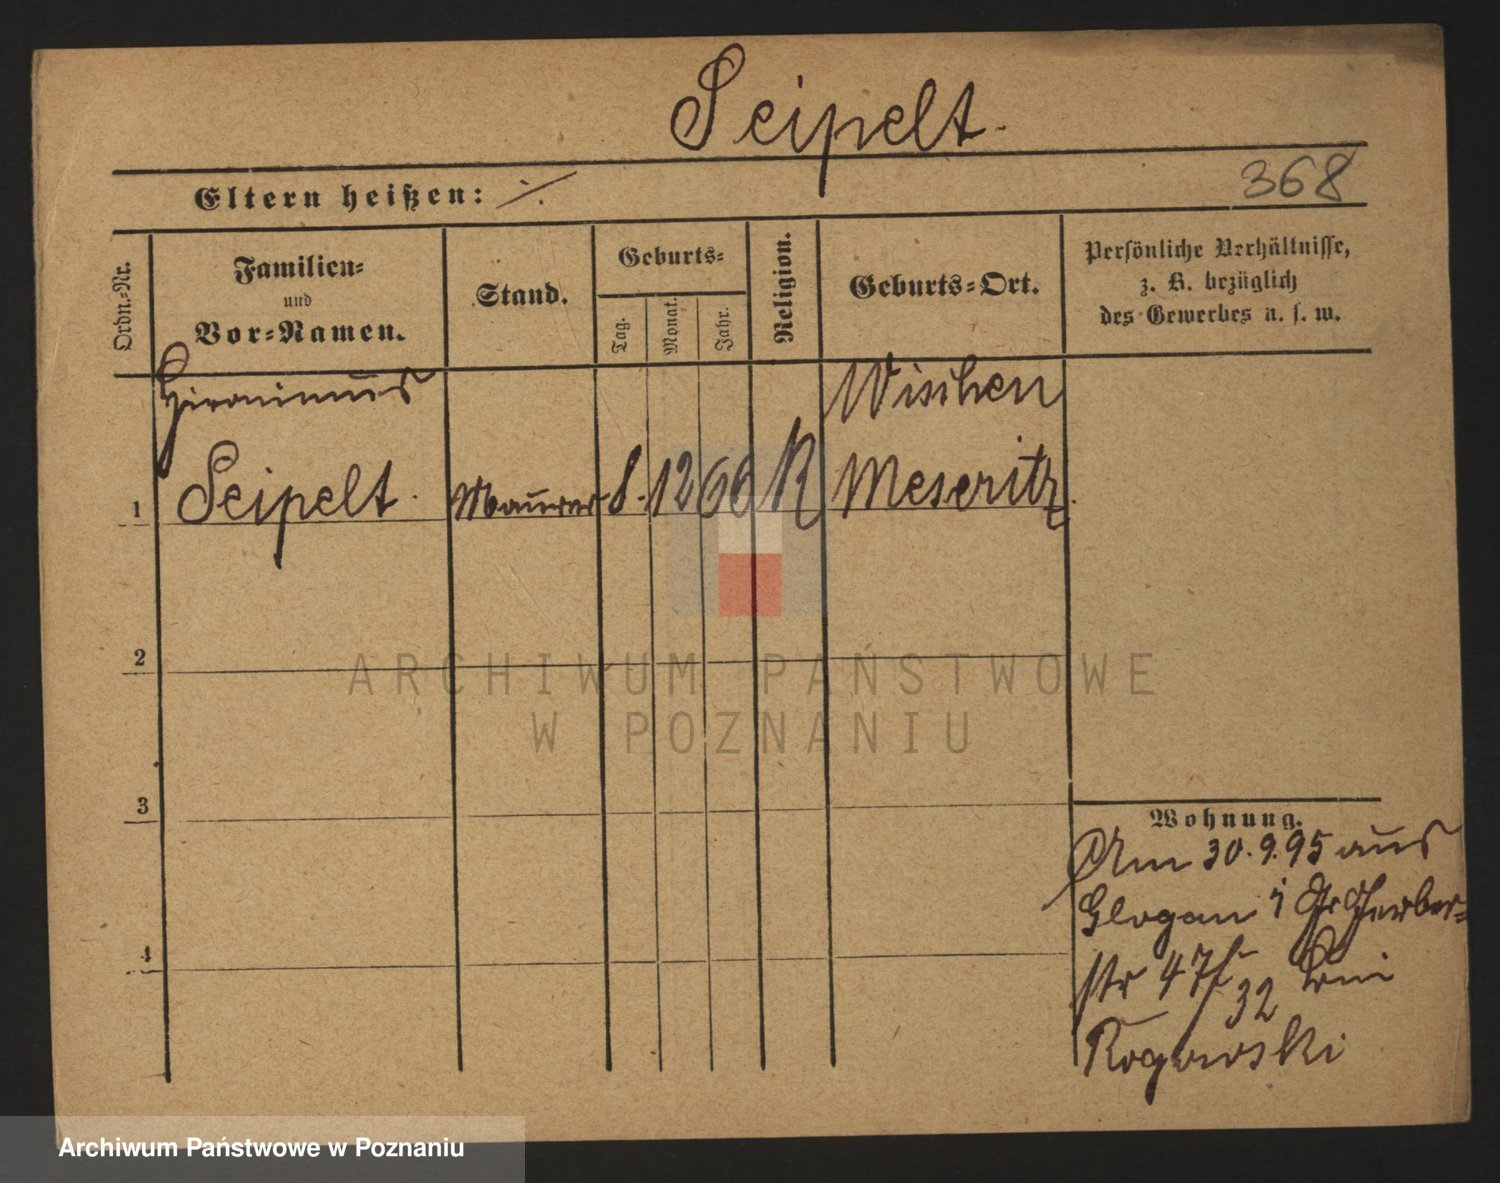 Seipelt.
368
Eltern heißen: ./.
Ordn.-Nr.
Familien-
und
Vor-Namen.
Stand.
Geburts-
Tag.
Monat.
Jahr.
Religion.
Geburts-Ort.
Persönliche Verhältnisse,
z. B. bezüglich
des Gewerbes u. s. w.
Hieronimus
Wischen
1 Seipelt. Maurer 8. 12 66 K Meseritz.
2
3
4
Wohnung.
Am 30.9.95 aus
Glogau i Gr Gerber-
str 47/32 bei
Rogowski
ARCHIWUM PAŃSTWOWE
W POZNANIU
Archiwum Państwowe w Poznaniu